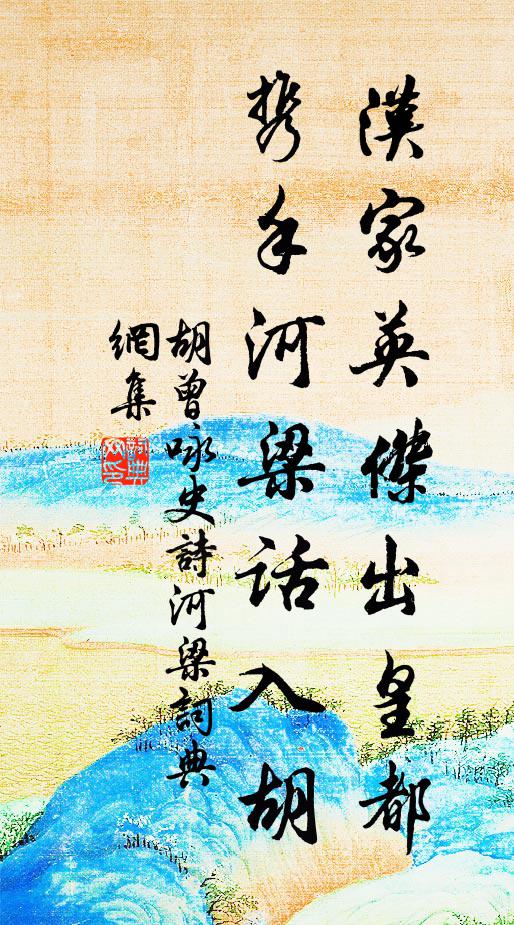 漢家英傑出皇都
攜手河梁話入胡
胡曾咏史詩河梁詞典
網集